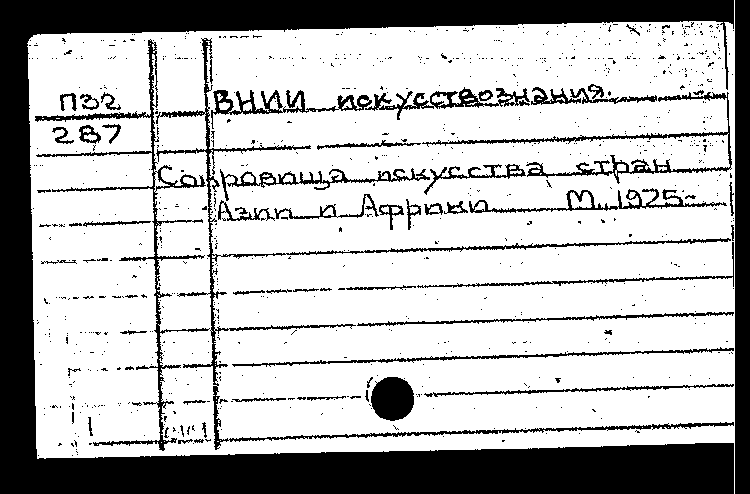 П32 ВНИИ искусствознания.
287
Сокровища искусства стран
Азии и Африки М., 1975-